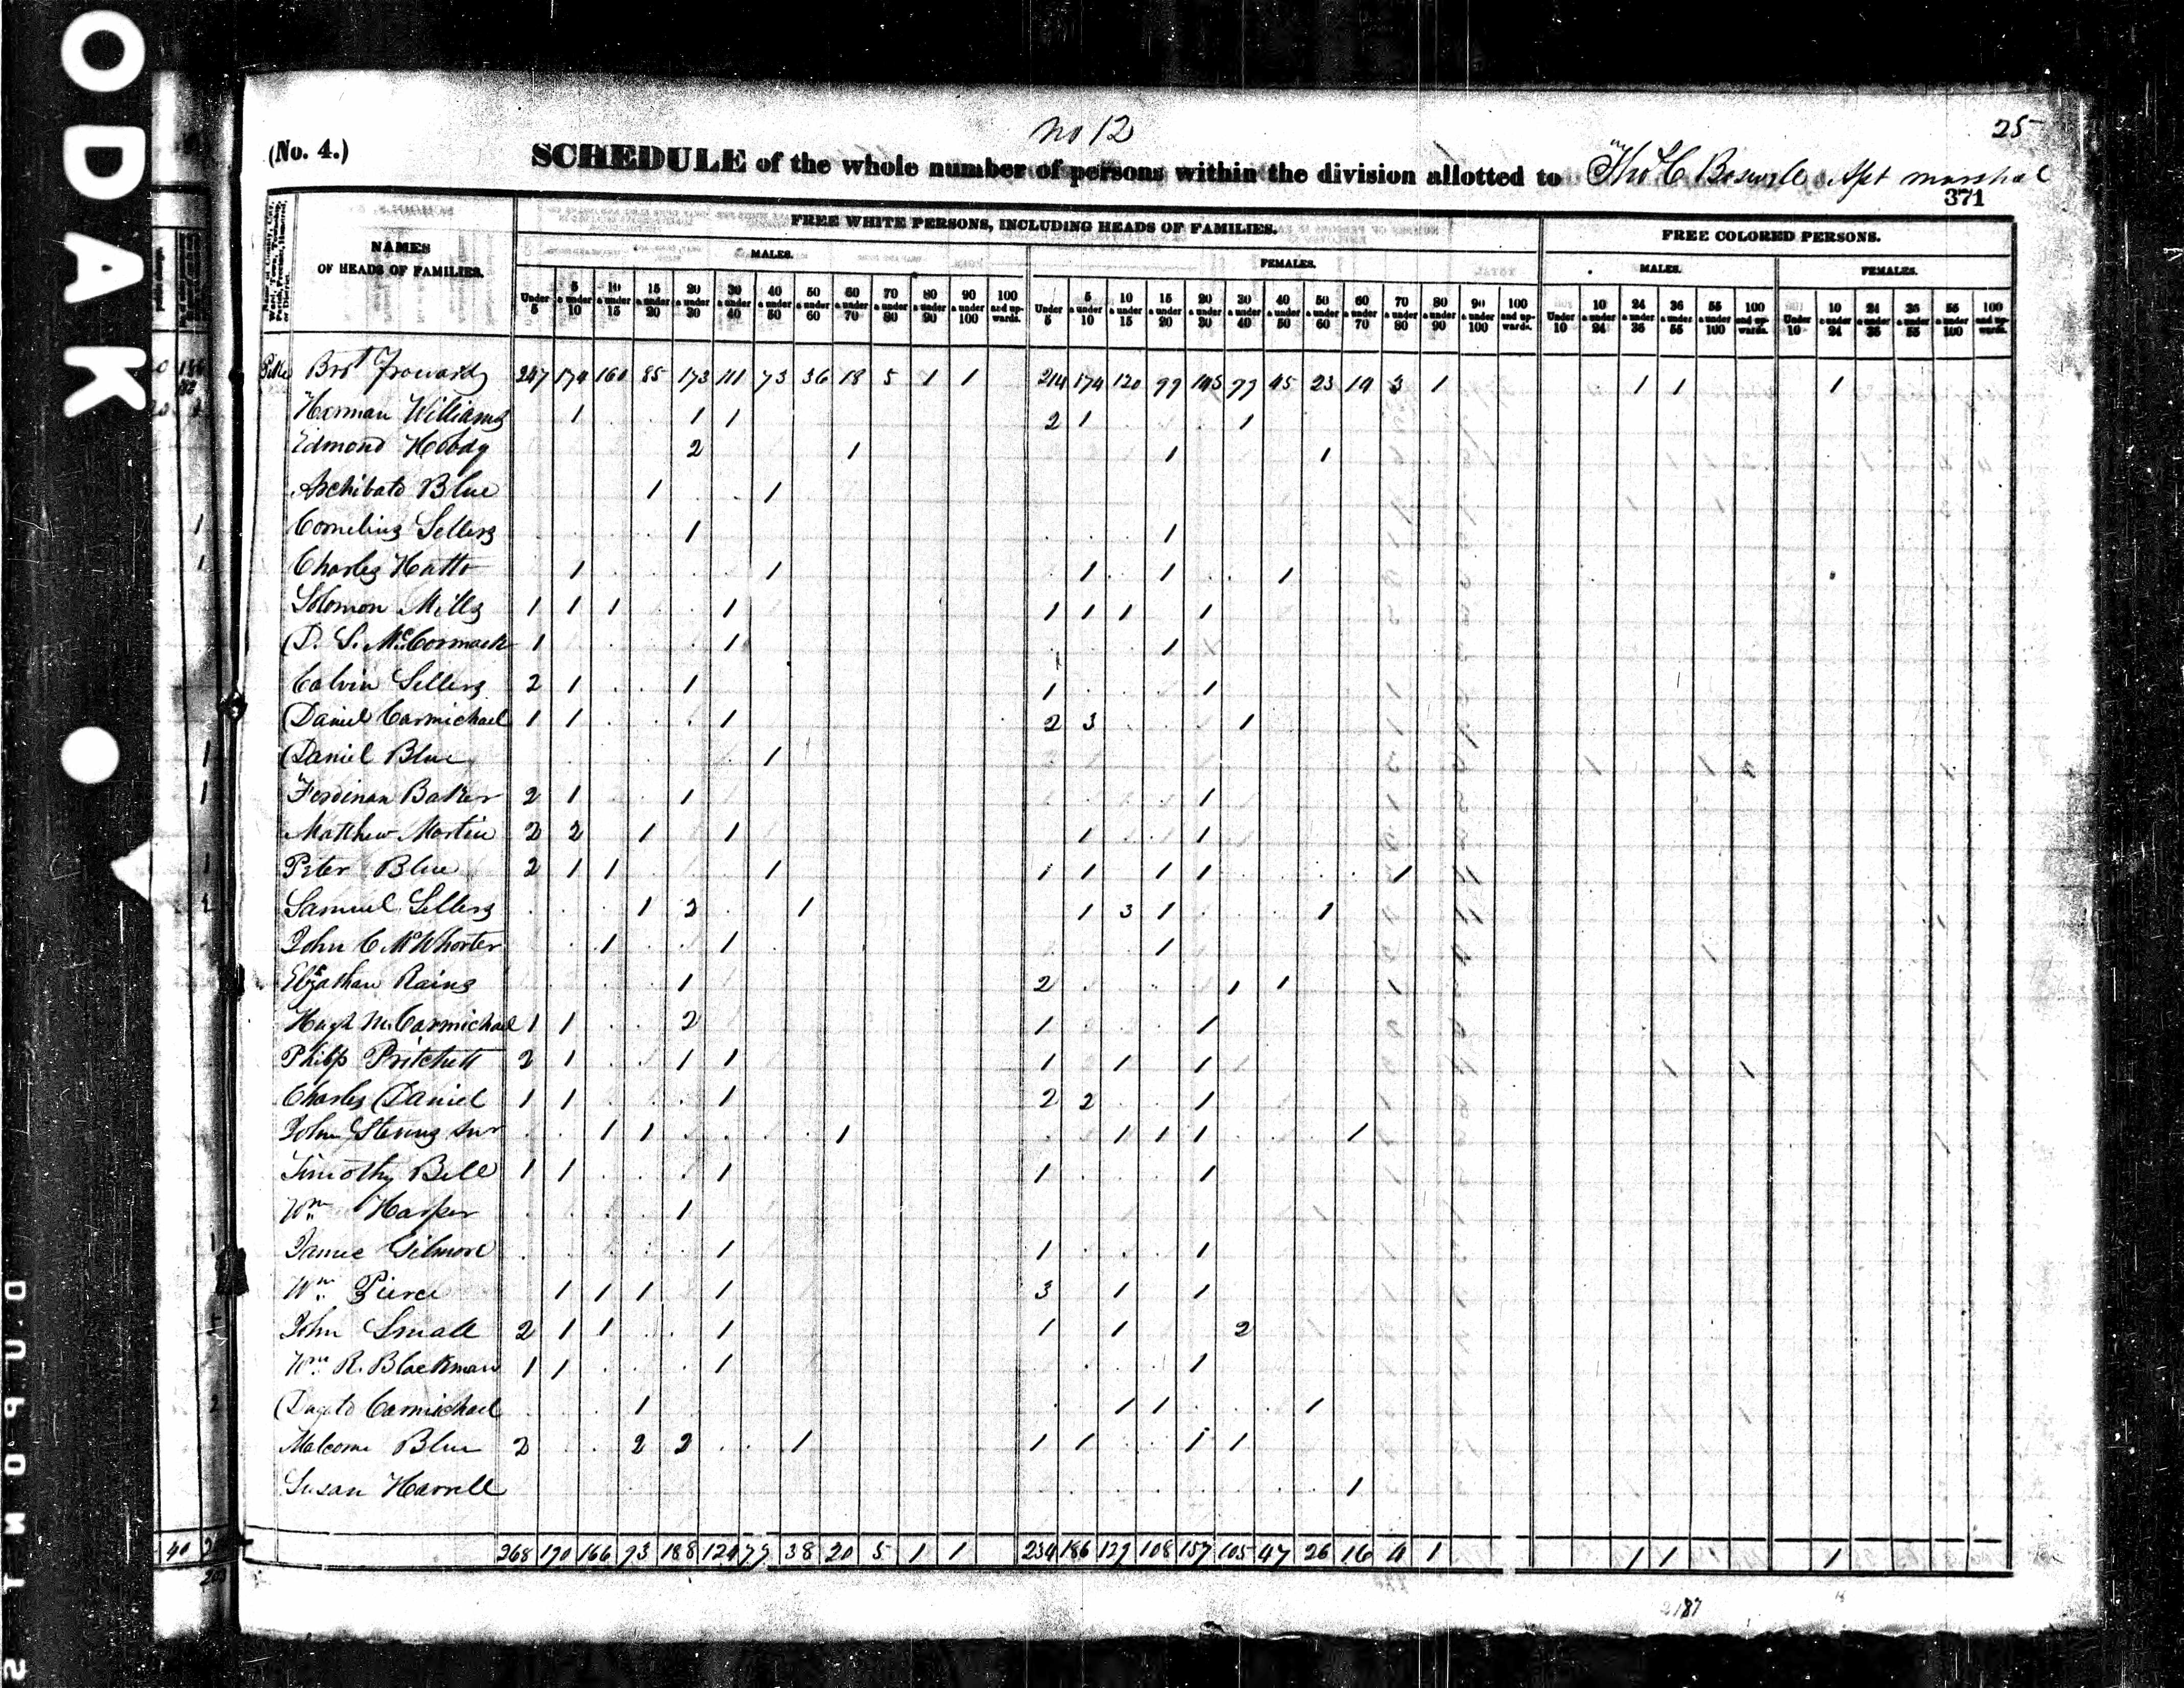 ODAK
no 12
25
(No. 4.)
SCHEDULE of the whole number of persons within the division allotted to Tho C Boswell Ast marshal
371
NAMES OF HEADS OF FAMILIES.
FREE WHITE PERSONS, INCLUDING HEADS OF FAMILIES.
FREE COLORED PERSONS.
MALES. FEMALES. MALES. FEMALES.
Under 5 | 5 & under 10 | 10 & under 15 | 15 & under 20 | 20 & under 30 | 30 & under 40 | 40 & under 50 | 50 & under 60 | 60 & under 70 | 70 & under 80 | 80 & under 90 | 90 & under 100 | 100 and upwards. | Under 5 | 5 & under 10 | 10 & under 15 | 15 & under 20 | 20 & under 30 | 30 & under 40 | 40 & under 50 | 50 & under 60 | 60 & under 70 | 70 & under 80 | 80 & under 90 | 90 & under 100 | 100 and upwards. | Under 10 | 10 & under 24 | 24 & under 36 | 36 & under 55 | 55 & under 100 | 100 and upwards. | Under 10 | 10 & under 24 | 24 & under 36 | 36 & under 55 | 55 & under 100 | 100 and upwards.
Pike Brot Froward 247 174 160 85 173 111 73 36 18 5 1 1 214 174 120 99 145 99 45 23 14 3 1 1 1 1
Harman Williams 1 1 1 2 1 1
Edmond Hobdy 2 1 1 1
Archibald Blue 1 1
Cornelius Sellers 1 1
Charles Hatto 1 1 1 1 1
Solomon Mills 1 1 1 1 1 1 1 1
D. S. McCormack 1 1 1
Calvin Sellers 2 1 1 1 1
Daniel Carmichael 1 1 1 2 3 1
Daniel Blue 1
Ferdinan Baker 2 1 1 1
Matthew Martin 2 2 1 1 1 1
Peter Blue 2 1 1 1 1 1 1 1 1
Samuel Sellers 1 2 1 1 3 1 1
John C McWhorter 1 1 1
Rains 1 2 1 1
Hugh McCarmichael 1 1 2 1 1
Philip Pritchett 2 1 1 1 1 1 1
Charles Daniel 1 1 1 2 2 1
John Stevens Snr 1 1 1 1 1 1 1
Timothy Bell 1 1 1 1 1
Wm Harper 1
Jamie Gilmore 1 1 1
Wm Pierce 1 1 1 1 3 1 1
John Small 2 1 1 1 1 1 2
Wm R. Blackman 1 1 1 1
Dugald Carmichael 1 1 1 1
Malcome Blue 2 2 2 1 1 1 1 1
Susan Harrell 1
268 190 166 93 188 124 79 38 20 5 1 1 234 186 129 108 157 105 47 26 16 4 1 1 1 1
2187